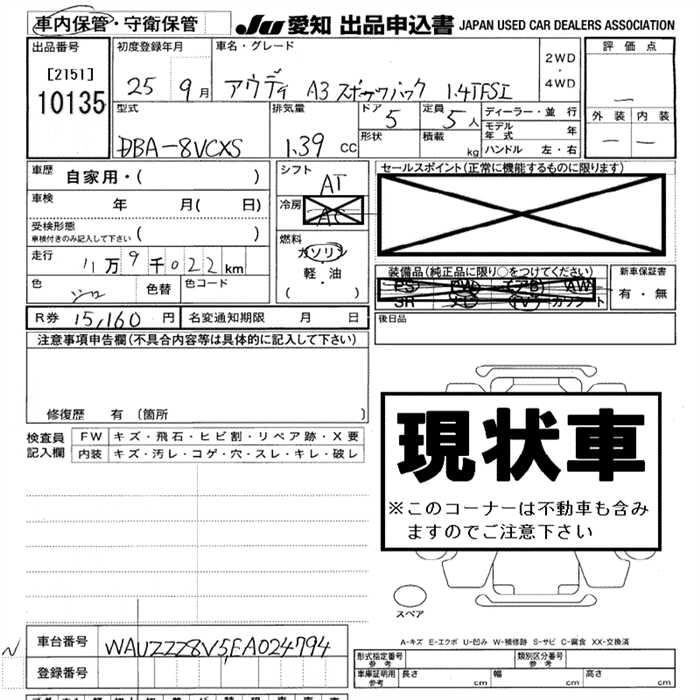 車内保管・守衛保管
JU 愛知 出品申込書 JAPAN USED CAR DEALERS ASSOCIATION
出品番号 初度登録年月 車名・グレード 評価点
[2151] 10135 25 9月 アウディ A3 スポーツバック 1.4TFSI 2WD・4WD
型式 排気量 ドア 定員 ディーラー・並行 外装 内装
DBA-8VCXS 1.39 CC 5 5人 モデル年式 年
形状 積載 kg ハンドル 左・右
車歴 自家用・( ) シフト AT セールスポイント(正常に機能するものに限ります)
車検 年 月( 日) 冷房 AC
受検形態 車検付きのみ記入して下さい ( ) 燃料 ガソリン
走行 11万9千022km 軽・油 装備品(純正品に限り○をつけてください) 新車保証書
PS PW エアB AW 有・無
色 シロ 色替 色コード ( ) SR ナビ TV カワシート
R券 15,160円 名変通知期限 月 日 後日品
注意事項申告欄(不具合内容等は具体的に記入して下さい)
修復歴 有〔箇所 〕
検査員記入欄 FW キズ・飛石・ヒビ割・リペア跡・X要
内装 キズ・汚レ・コゲ・穴・スレ・キレ・破レ
現状車
※このコーナーは不動車も含み
ますのでご注意下さい
スペア
A-キズ E-エクボ U-凹み W-補修跡 S-サビ C-腐食 XX-交換済
車台番号 WAUZZZ8V5EA024794
形式指定番号 参考 類別区分番号 参考
登録番号 車庫証明用 参考 長さ cm 幅 cm 高さ cm